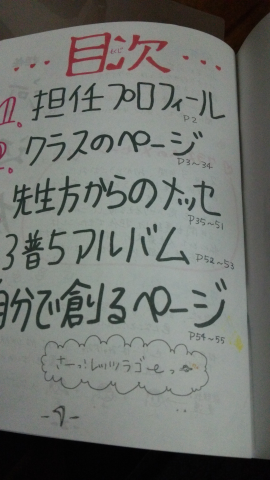 …目次…
1. 担任プロフィール
P2
2. クラスのページ
P3~34
先生方からのメッセ
P35~51
3普5アルバム
P52~53
自分で創るページ
P54~55
さーっ!レッツラゴーe
-1-